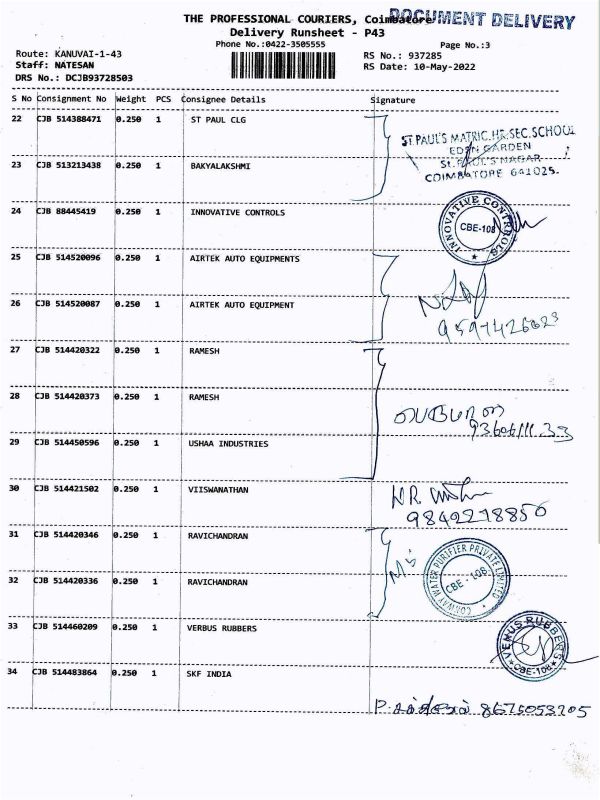 DOCUMENT DELIVERY
THE PROFESSIONAL COURIERS, Coimbatore
Delivery Runsheet - P43
Phone No.:0422-3505555
Page No.:3
Route: KANUVAI-1-43
RS No.: 937285
Staff: NATESAN
RS Date: 10-May-2022
DRS No.: DCJB93728503
S No Consignment No Weight PCS Consignee Details Signature
22 CJB 514388471 0.250 1 ST PAUL CLG
ST.PAUL'S MATRIC.HR.SEC.SCHOOL
EDEN GARDEN
St.PAUL'S NAGAR
COIMBATORE 641025.
23 CJB 513213438 0.250 1 BAKYALAKSHMI
24 CJB 88445419 0.250 1 INNOVATIVE CONTROLS
INNOVATIVE CONTROLS
CBE-108
25 CJB 514520096 0.250 1 AIRTEK AUTO EQUIPMENTS
26 CJB 514520087 0.250 1 AIRTEK AUTO EQUIPMENT
27 CJB 514420322 0.250 1 RAMESH
28 CJB 514420373 0.250 1 RAMESH
பெருமாள்
29 CJB 514450596 0.250 1 USHAA INDUSTRIES
30 CJB 514421502 0.250 1 VIISWANATHAN
9842218850
31 CJB 514420346 0.250 1 RAVICHANDRAN
WATER PURIFIER PRIVATE LIMITED
CBE - 108
32 CJB 514420336 0.250 1 RAVICHANDRAN
33 CJB 514460209 0.250 1 VERBUS RUBBERS
VENUS RUBBERS
CBE-108
34 CJB 514483864 0.250 1 SKF INDIA
P. 8675053205